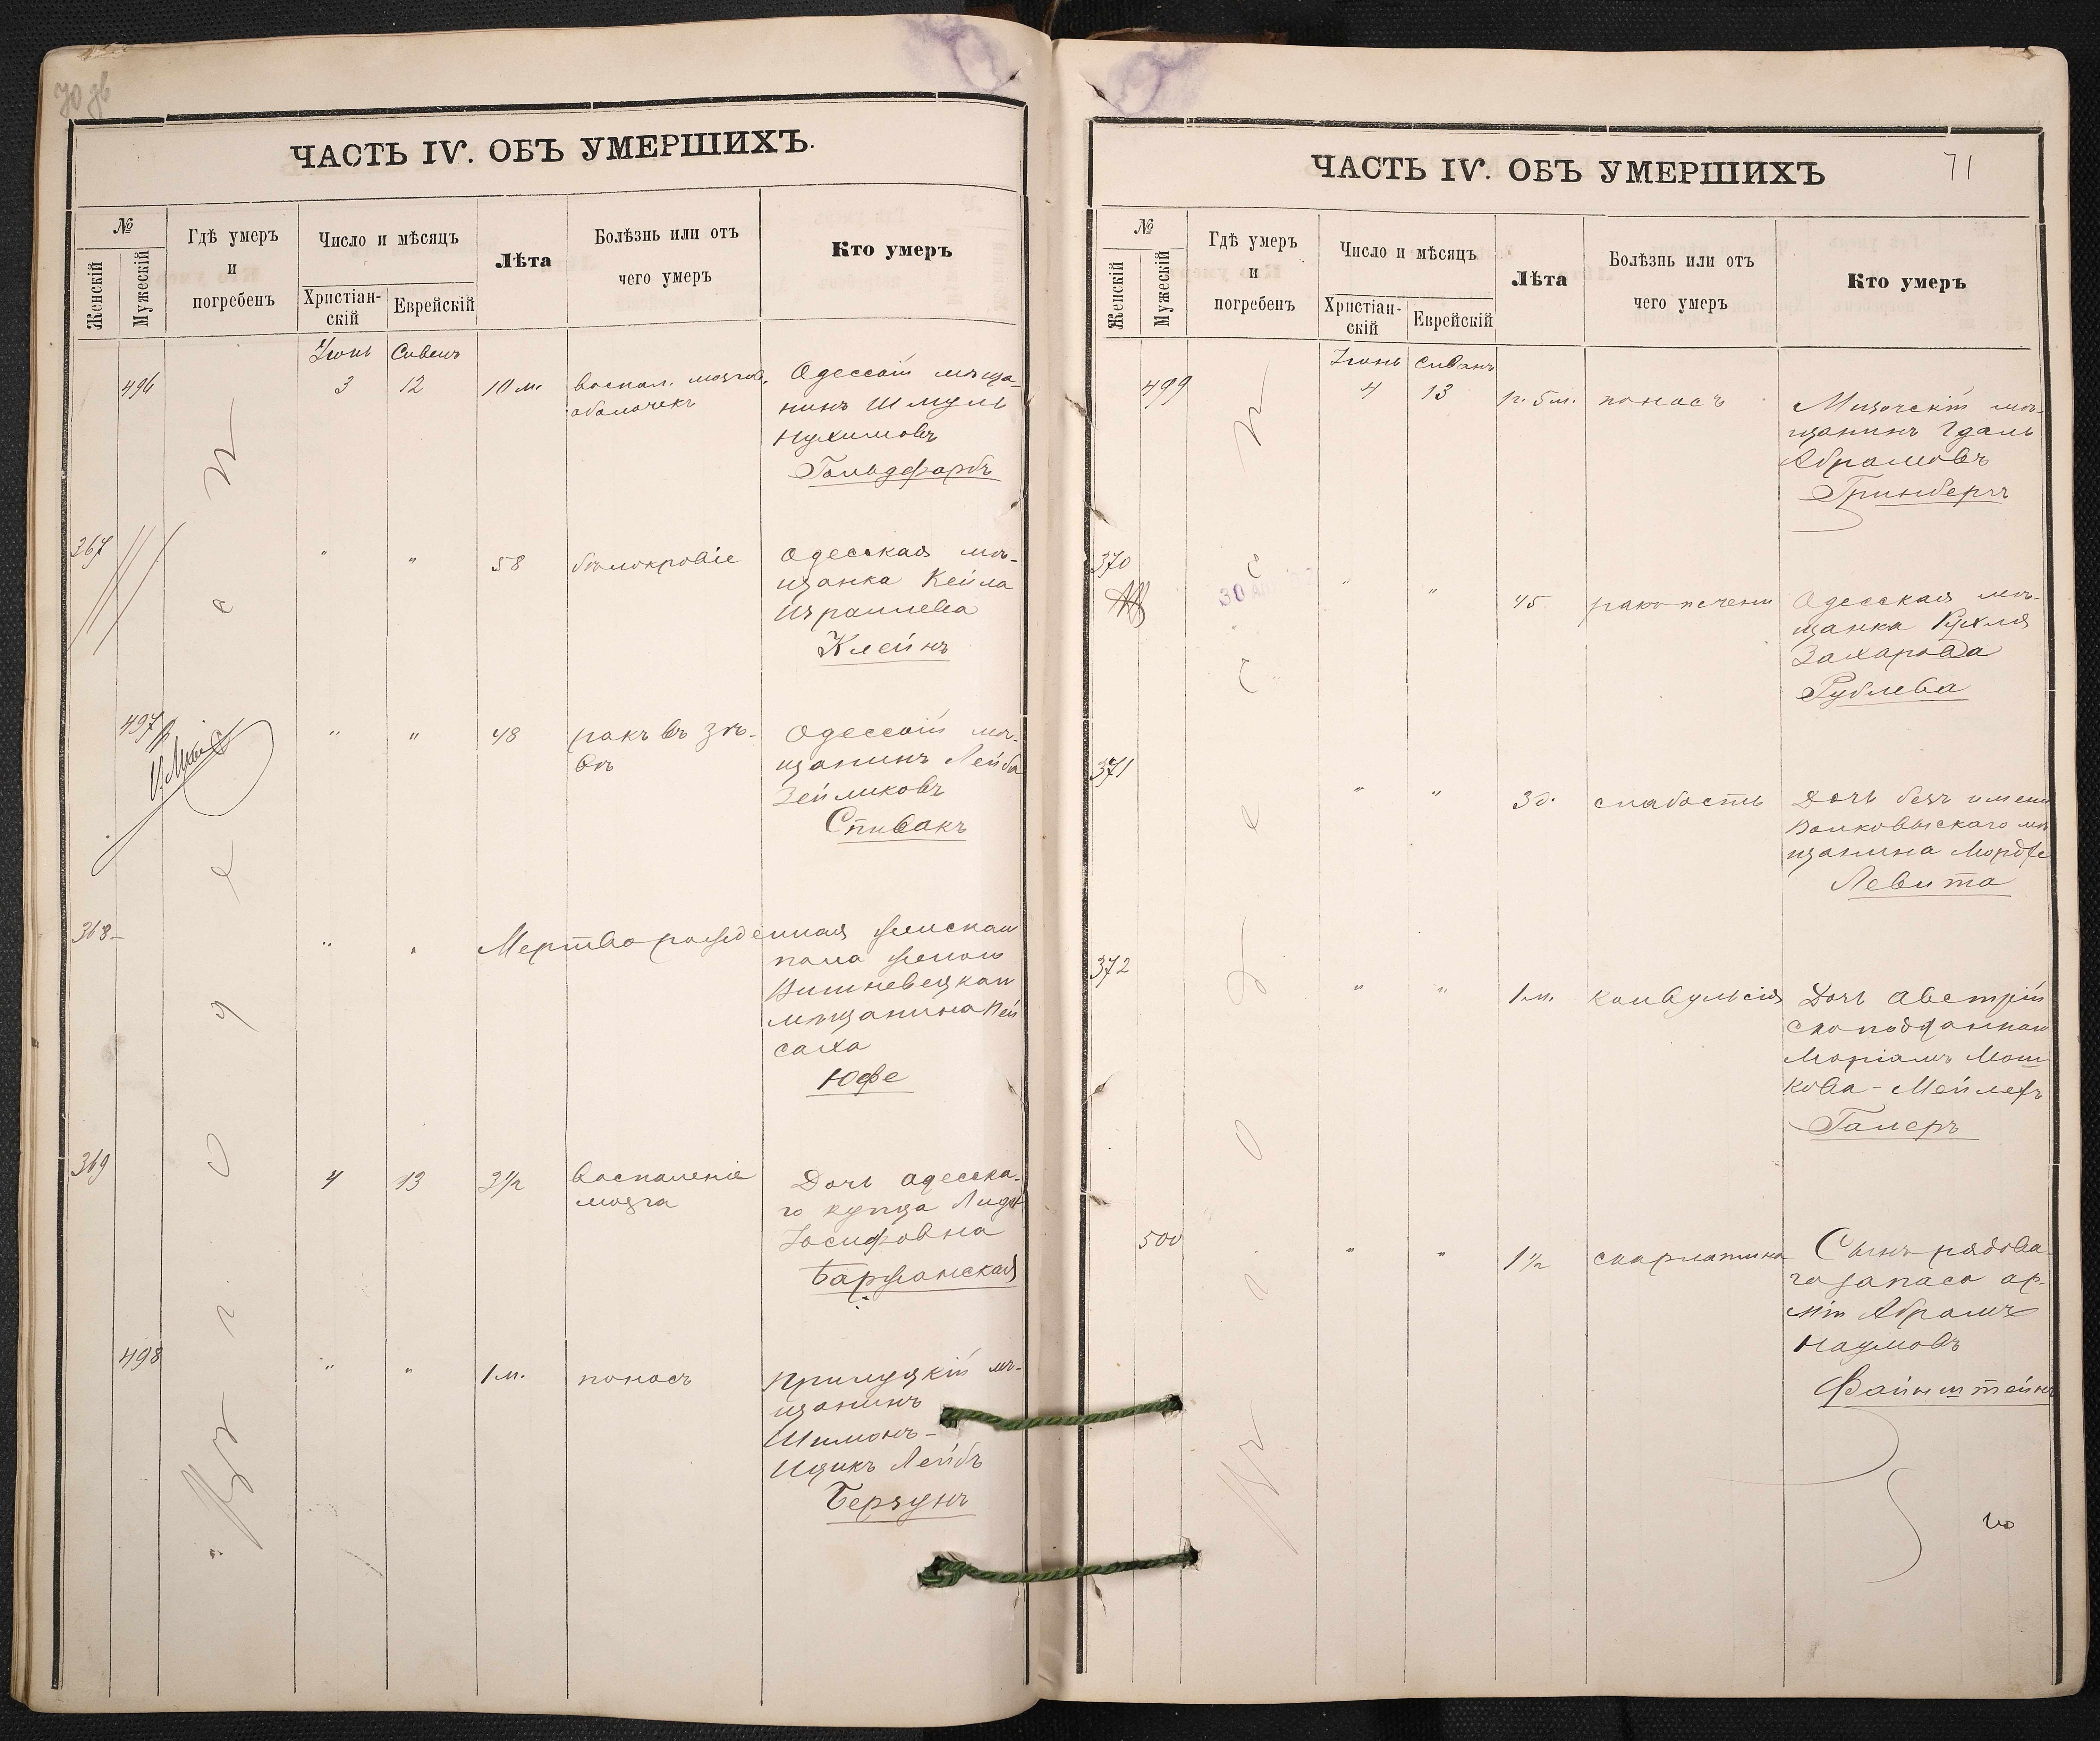 70 об
ЧАСТЬ IV. ОБЪ УМЕРШИХЪ.
№
Женскій
Мужескій
Гдѣ умеръ
и
погребенъ
Число и мѣсяцъ
Христіан-
скій
Еврейскій
Лѣта
Болѣзнь или отъ
чего умеръ
Кто умеръ
Въ г. Одессѣ
Іюнь Сивенъ
496 3 12 10 м. воспал. мозгов. Одесскій мѣща-
оболочекъ нинъ Шмуль
Нухимовъ
Гольдфарбъ
367 " " 58 бѣлокровіе Одесская мѣ-
щанка Кейла
Израилева
Клейнъ
497 " " 48 ракъ въ зѣ- Одесскій мѣ-
вѣ щанинъ Лейба
Зейликовъ
Спивакъ
368 " " Мертворожденная женскаго
пола
Вишневецкаго
мѣщанина Пей
саха
Юфе
369 4 13 3 1/2 воспаленіе Дочь одесска-
мозга го купца Лидія
Іосифовна
Баржанская
498 " " 1 м. поносъ Прилуцкій мѣ-
щанинъ
Шимонъ-
Ицикъ Лейбъ
Берзунъ
ЧАСТЬ IV. ОБЪ УМЕРШИХЪ
71
№
Женскій
Мужескій
Гдѣ умеръ
и
погребенъ
Число и мѣсяцъ
Христіан-
скій
Еврейскій
Лѣта
Болѣзнь или отъ
чего умеръ
Кто умеръ
Въ г. Одессѣ
Іюнь Сиванъ
499 4 13 1 г. 5 м. поносъ Мизочскій мѣ-
щанинъ Гдаль
Абрамовъ
Гринбергъ
370 30 " " 45 ракъ печени Одесская мѣ-
щанка Рухля
Захарова
Рублева
371 " " 3 д. слабость Дочь безъ имени
Волковыскаго мѣ
щанина Мордхе
Левита
372 " " 1 м. конвульсія Дочь Австрій
ско подданнаго
Маріамъ Мош
кова-Мейлехъ
Галеръ
500 " " 1 1/2 скарлатина Сынъ рядова-
го запаса ар-
міи Абрамъ
Наумовъ
Файнштейнъ